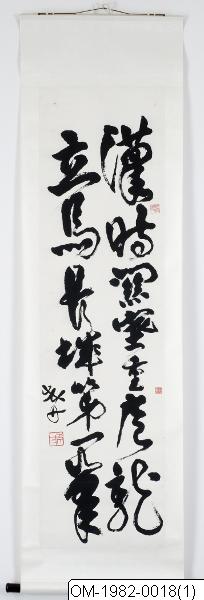 漢時關塞重盧龍
立馬長城第一峯
啟丹
OM-1982-0018(1)